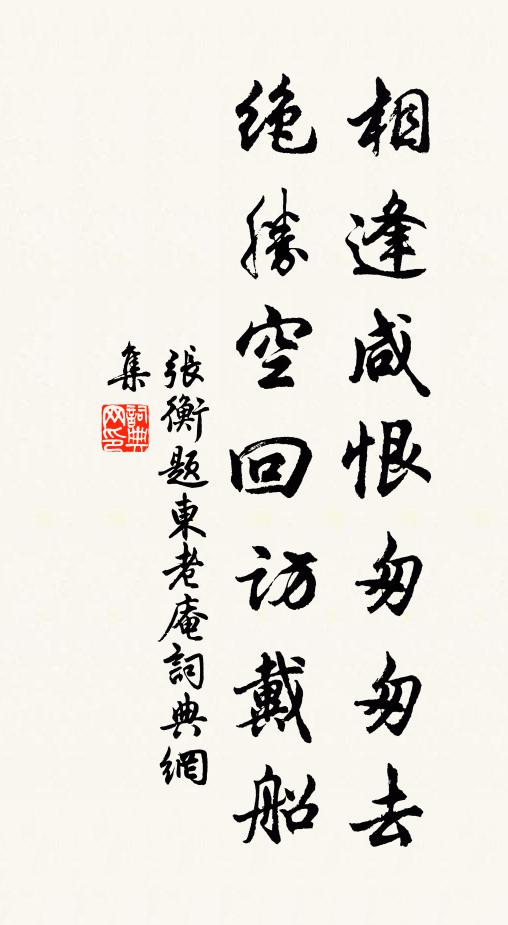 相逢咸恨匆匆去
绝勝空回访戴船
張衡题東老庵詞典網
集
詞典网印